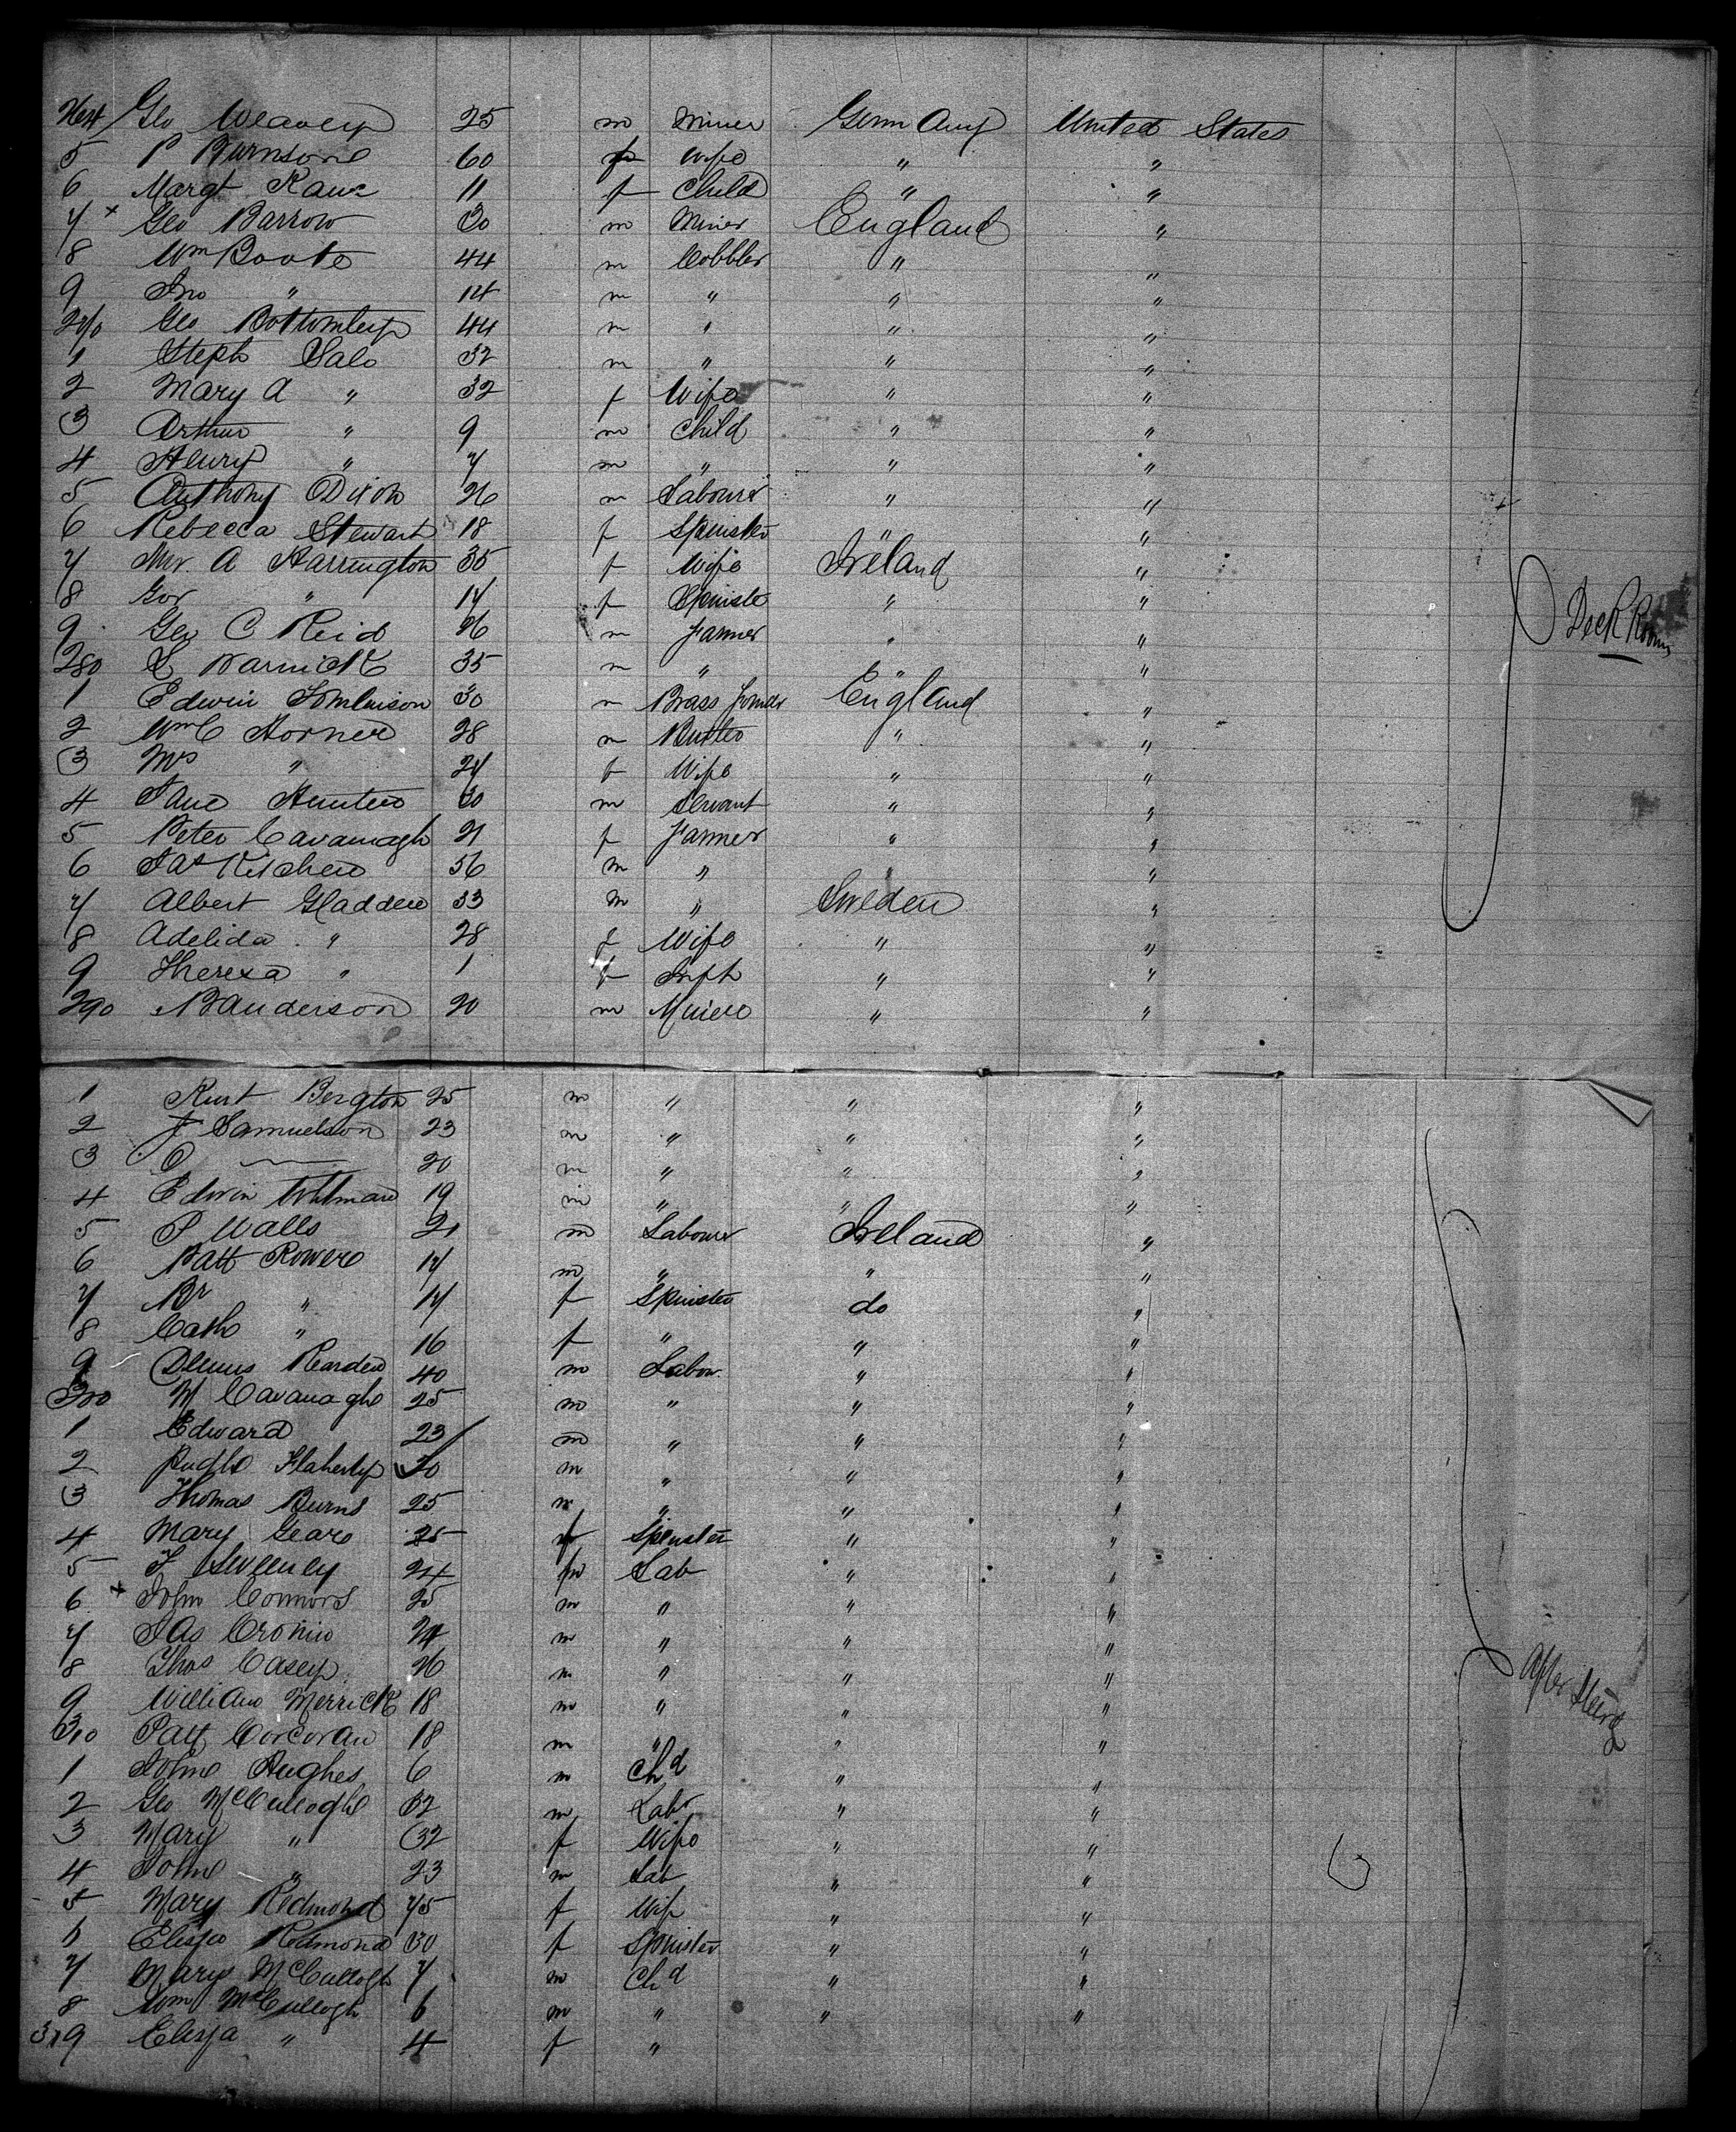 264 Geo Weaver 25 m Miner Germany United States
5 P Burnsone 60 f Wife " "
6 Margt 11 f Child " "
7 Geo Barrow 30 m Miner England "
8 Wm Boote 44 m Cobbler " "
9 Jno " 14 m " " "
270 Geo Bottomley 44 m " " "
1 Steph Sale 32 m " " "
2 Mary A " 32 f Wife " "
3 Arthur " 9 m Child " "
4 Henry " 7 m " " "
5 Anthony Dixon 26 m Labourer " "
6 Rebecca Stewart 18 f Spinster " "
7 A Harrington 35 f Wife Ireland "
8 " 14 f Spinste " "
9 Geo C Reid 26 m Farmer " "
280 L Warnick 35 m " " "
1 Edwin Tomlinson 30 m Brass England "
2 Wm C Horner 28 m " "
3 Mrs " 24 f Wife " "
4 Jane Hunter 30 m Servant " "
5 Peter Cavanagh 21 f Farmer " "
6 Jas Kitchen 56 m " "
7 Albert Gladden 33 m " Sweden "
8 Adelida " 28 f Wife " "
9 Theresa " 1 f Inft " "
290 B Anderson 20 m Miner " "
1 Kurt Bergton 25 m " " "
2 J Samuelson 23 m " " "
3 O — 20 m " " "
4 Edwin 19 m " " "
5 P Walls 21 m Labourer Ireland "
6 Patt Rowere 17 m " " "
7 Br " 14 f Spinster do "
8 Cath " 16 f " " "
9 Dennis Rearden 40 m Labour " "
300 M Cavanagh 25 m " " "
1 Edward 23 m " " "
2 Flaherty 20 m " " "
3 Thomas Burns 25 m " " "
4 Mary Geare 25 f Spinster " "
5 T Sweeney 24 m Lab " "
6 John Connors 25 m " " "
7 Jas Cronin 24 m " " "
8 Thos Casey 26 m " " "
9 William Merrick 18 m " " "
310 Patt Corcoran 18 m " " "
1 John Hughes 6 m Chd " "
2 Geo McCullogh 32 m Labr " "
3 Mary " 32 f Wife " "
4 John " 23 m Lab " "
5 Mary Redmond 75 f Wife " "
6 Redmond 30 f Spinster " "
7 Mary McCullogh 7 m Chd " "
8 Wm McCullogh 6 m " " "
319 " 4 f "
Deck Rooms
After Steerg